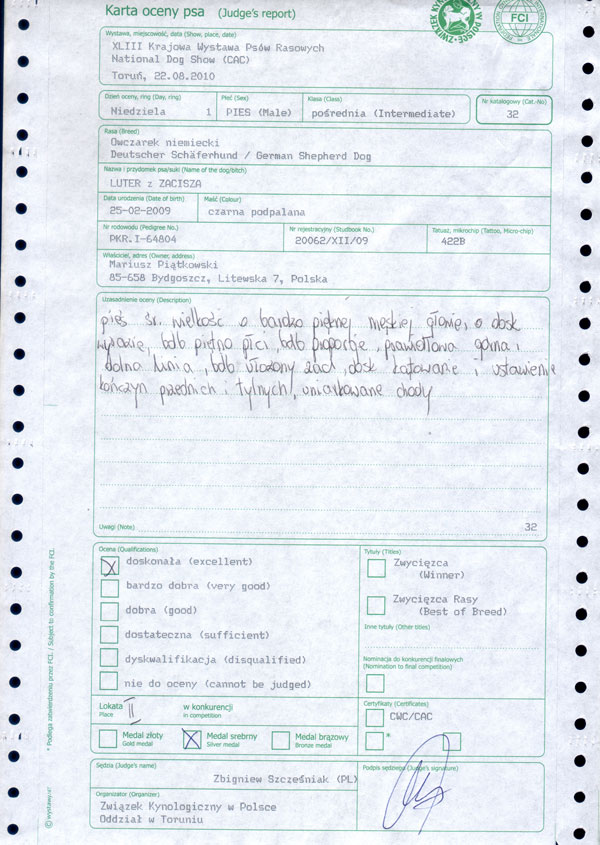 Karta oceny psa (Judge's report)
ZWIĄZEK KYNOLOGICZNY W POLSCE
FCI
Wystawa, miejscowość, data (Show, place, date)
XLIII Krajowa Wystawa Psów Rasowych
National Dog Show (CAC)
Toruń, 22.08.2010
Dzień oceny, ring (Day, ring) Płeć (Sex) Klasa (Class) Nr katalogowy (Cat.-No)
Niedziela 1 PIES (Male) pośrednia (Intermediate) 32
Rasa (Breed)
Owczarek niemiecki
Deutscher Schäferhund / German Shepherd Dog
Nazwa i przydomek psa/suki (Name of the dog/bitch)
LUTER z ZACISZA
Data urodzenia (Date of birth) Maść (Colour)
25-02-2009 czarna podpalana
Nr rodowodu (Pedigree No.) Nr rejestracyjny (Studbook No.) Tatuaż, mikrochip (Tattoo, Micro-chip)
PKR.I-64804 20062/XII/09 422B
Właściciel, adres (Owner, address)
Mariusz Piątkowski
85-658 Bydgoszcz, Litewska 7, Polska
Uzasadnienie oceny (Description)
pies śr. wielkość o bardzo pięknej męskiej głowie, o dosk
wyrazie, bdb piętno płci, bdb proporcje, prawidłowa górna i
dolna linia, bdb ułożony zad, dosk kątowanie i ustawienie
kończyn przednich i tylnych, umiarkowane chody
Uwagi (Note) 32
Ocena (Qualifications)
doskonała (excellent)
bardzo dobra (very good)
dobra (good)
dostateczna (sufficient)
dyskwalifikacja (disqualified)
nie do oceny (cannot be judged)
Tytuły (Titles)
Zwycięzca
(Winner)
Zwycięzca Rasy
(Best of Breed)
Inne tytuły (Other titles)
Nominacja do konkurencji finałowych
(Nomination to final competition)
Lokata II w konkurencji
Place in competition
Certyfikaty (Certificates)
CWC/CAC
*
Medal złoty Medal srebrny Medal brązowy
Gold medal Silver medal Bronze medal
Sędzia (Judge's name)
Zbigniew Szcześniak (PL)
Podpis sędziego (Judge's signature)
Organizator (Organizer)
Związek Kynologiczny w Polsce
Oddział w Toruniu
* Podlega zatwierdzeniu przez FCI. / Subject to confirmation by the FCI.